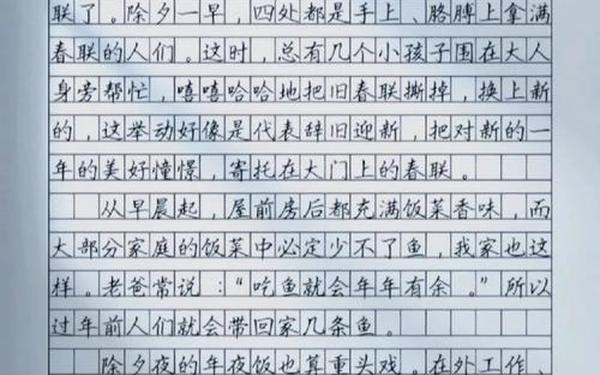 联了。除夕一早，四处都是手上、胳膊上拿满
春联的人们。这时，总有几个小孩子围在大人
身旁帮忙，嘻嘻哈哈地把旧春联撕掉，换上新
的，这举动好像是代表辞旧迎新，把对新的一
年的美好憧憬，寄托在大门上的春联。
从早晨起，屋前房后都充满饭菜香味，而
大部分家庭的饭菜中必定少不了鱼，我家也这
样。老爸常说：“吃鱼就会年年有余。”所以
过年前人们就会带回家几条鱼。
除夕夜的年夜饭也算重头戏。在外工作、